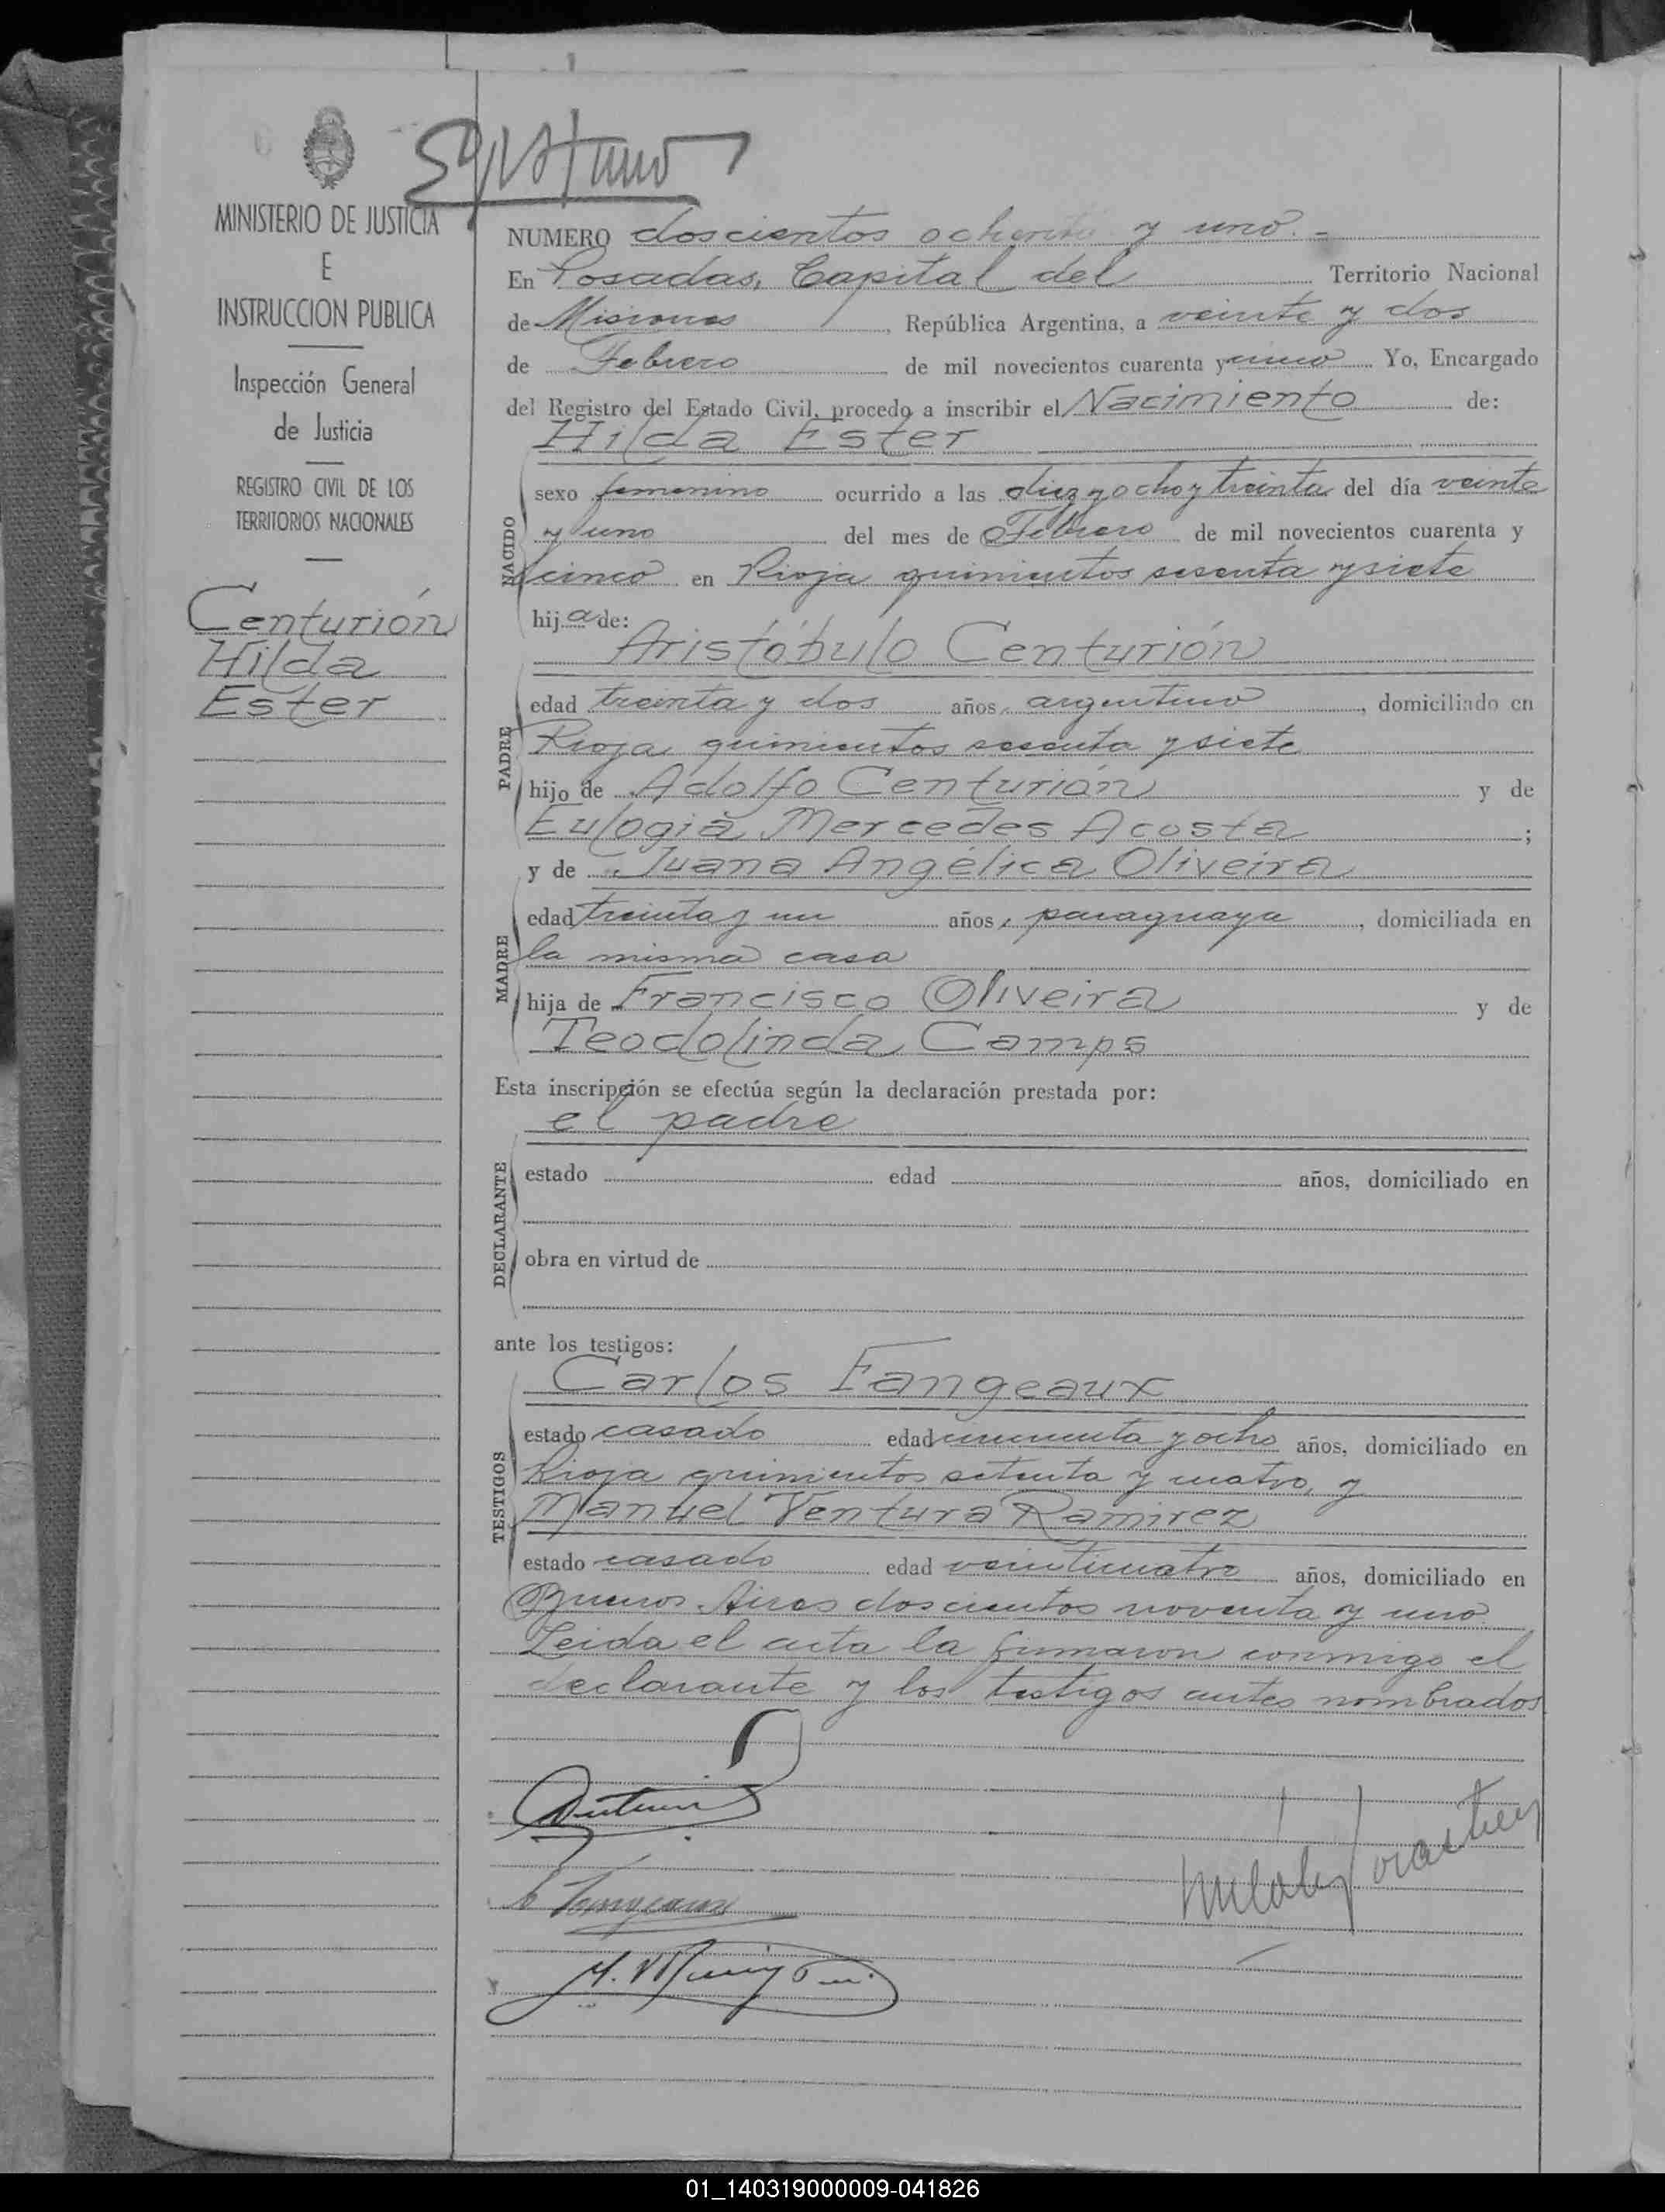 MINISTERIO DE JUSTICIA
E
INSTRUCCION PUBLICA
Inspección General
de Justicia
REGISTRO CIVIL DE LOS
TERRITORIOS NACIONALES
Centurión
Hilda
Ester
NUMERO doscientos ochenta y uno.-
En Posadas, Capital del Territorio Nacional
de Misiones, República Argentina, a veinte y dos
de Febrero de mil novecientos cuarenta y cinco Yo, Encargado
del Registro del Estado Civil, procedo a inscribir el Nacimiento de:
Hilda Ester
NACIDO
sexo femenino ocurrido a las diez y ocho y treinta del día veinte
y uno del mes de Febrero de mil novecientos cuarenta y
cinco en Rioja quinientos sesenta y siete
hija de:
Aristóbulo Centurión
PADRE
edad treinta y dos años, argentino, domiciliado en
Rioja quinientos sesenta y siete
hijo de Adolfo Centurión y de
Eulogia Mercedes Acosta;
y de Juana Angélica Oliveira
MADRE
edad treinta y un años, paraguaya, domiciliada en
la misma casa
hija de Francisco Oliveira y de
Teodolinda Camps
Esta inscripción se efectúa según la declaración prestada por:
el padre
DECLARANTE
estado edad años, domiciliado en
obra en virtud de
ante los testigos:
Carlos Fangeaux
TESTIGOS
estado casado edad cincuenta y ocho años, domiciliado en
Rioja quinientos setenta y cuatro, y
Manuel Ventura Ramirez
estado casado edad veinticuatro años, domiciliado en
Buenos Aires doscientos noventa y uno.
Leida el acta la firmaron conmigo el
declarante y los testigos antes nombrados
01_140319000009-041826